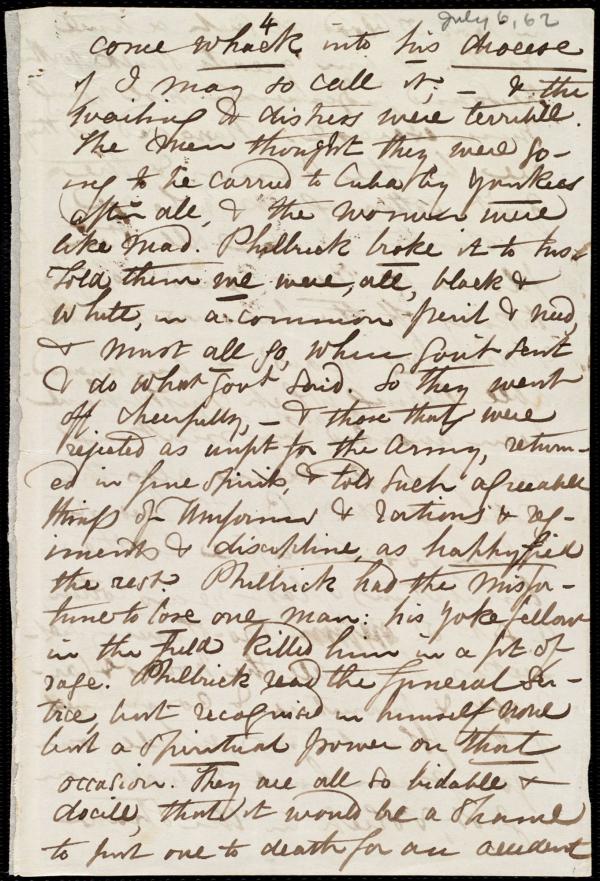 4
July 6, 62
come whack into his diocese
if I may so call it, — & the
wailing & distress were terrible.
The men thought they were go-
ing to be carried to Cuba by Yankees
after all, & the women were
like mad. Philbrick broke it to his
Told them we were, all, black &
white, in a common peril & need,
& must all go, when Govt sent
& do what Govt said. So they went
off cheerfully, — & those that were
rejected as unfit for the Army, return-
ed in fine spirits, & told such agreeable
things of Uniforms & rations & reg-
iments & discipline, as happyfied
the rest. Philbrick had the misfor-
tune to lose one man: his yoke fellow
in the Field killed him in a fit of
rage. Philbrick read the funeral Ser-
vice, but recognised in himself none
but a spiritual power on that
occasion. They are all so bidable &
docile, that it would be a shame
to put one to death for an accident